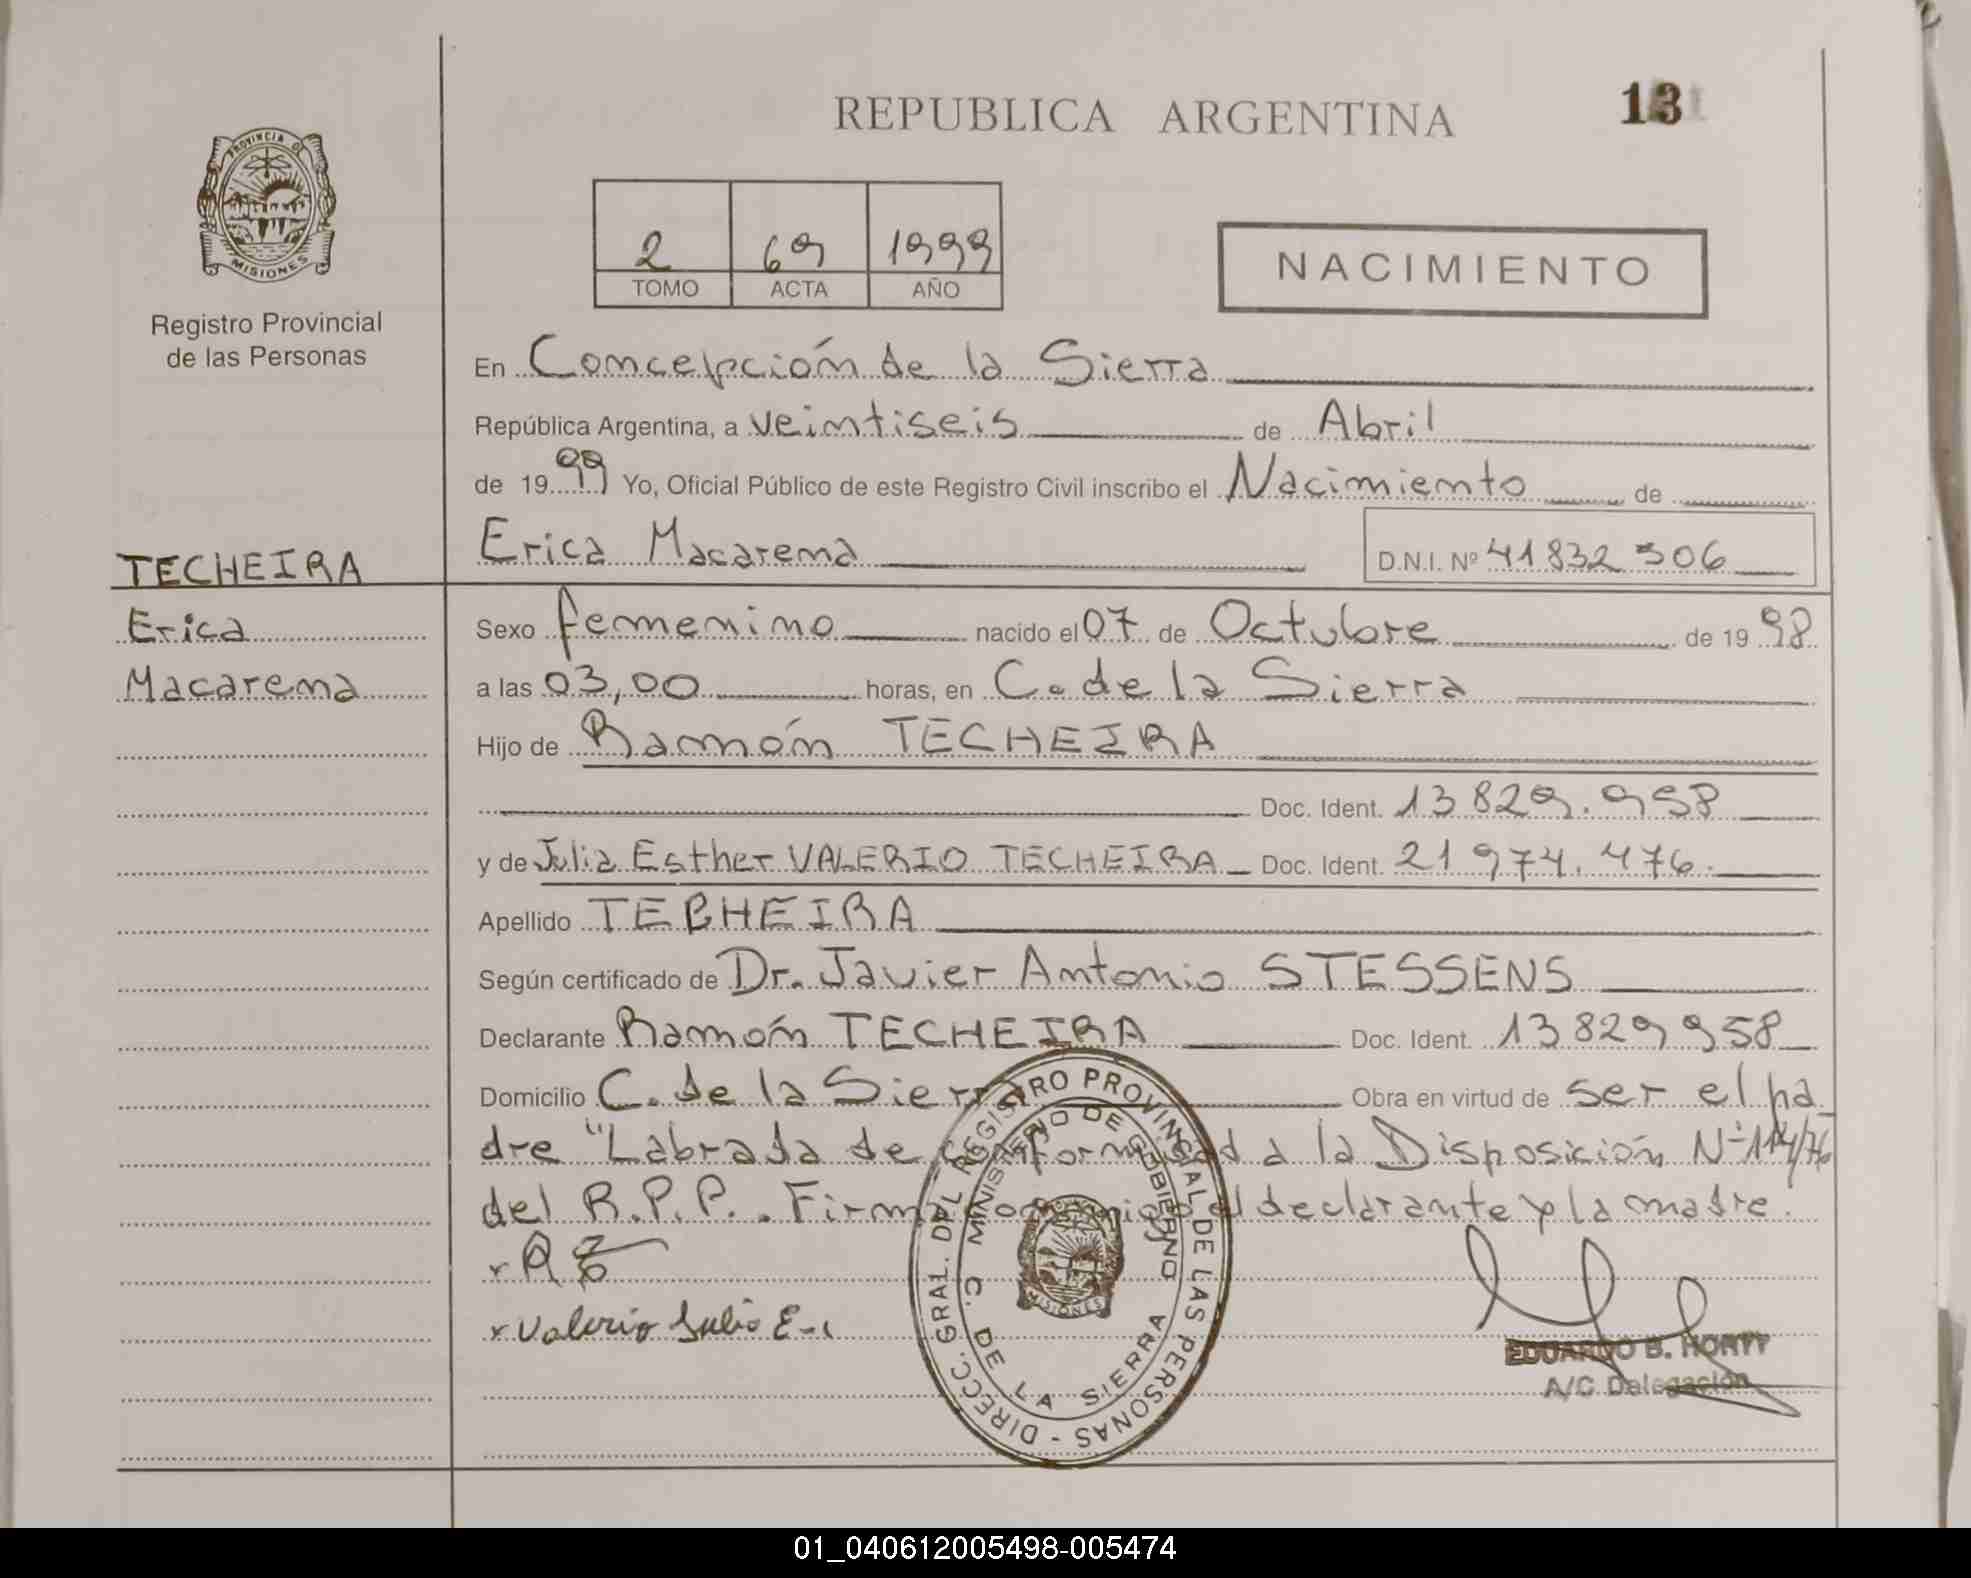 REPUBLICA ARGENTINA
13
PROVINCIA DE
MISIONES
Registro Provincial
de las Personas
2 69 1999
TOMO ACTA AÑO
NACIMIENTO
En Concepción de la Sierra
República Argentina, a veintiseis de Abril
de 19 99 Yo, Oficial Público de este Registro Civil inscribo el Nacimiento de
Erica Macarena D.N.I. Nº 41832 306
TECHEIRA
Erica
Macarena
Sexo femenino nacido el 07 de Octubre de 19 98
a las 03,00 horas, en C. de la Sierra
Hijo de Ramón TECHEIRA
Doc. Ident. 13 829.958
y de Julia Esther VALERIO TECHEIRA Doc. Ident. 21 974.476.
Apellido TECHEIRA
Según certificado de Dr. Javier Antonio STESSENS
Declarante Ramón TECHEIRA Doc. Ident. 13 829 958
Domicilio C. de la Sierra Obra en virtud de ser el pa
dre "Labrada de conformidad a la Disposición Nº 114/76
del R.P.P.. Firma conmigo el declarante y la madre.
Valerio Julia E.
DIRECC. GRAL. DEL REGISTRO PROVINCIAL DE LAS PERSONAS -
MINISTERIO DE GOBIERNO
C. DE LA SIERRA
MISIONES
EDUARDO B. HORTT
A/C Delegación
01_040612005498-005474